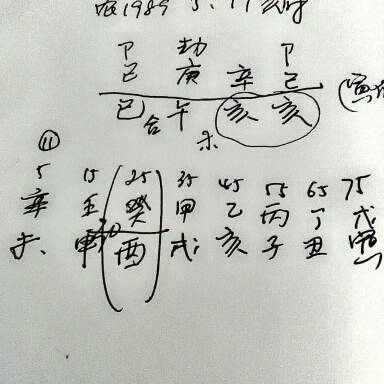 农1989 5、11 亥时
卩 劫 卩
己 庚 辛 己
巳 合 午 亥 亥
未
11
5 15 25 35 45 55 65 75
辛 壬 癸 甲 乙 丙 丁 戊
未 申 酉 戌 亥 子 丑 寅